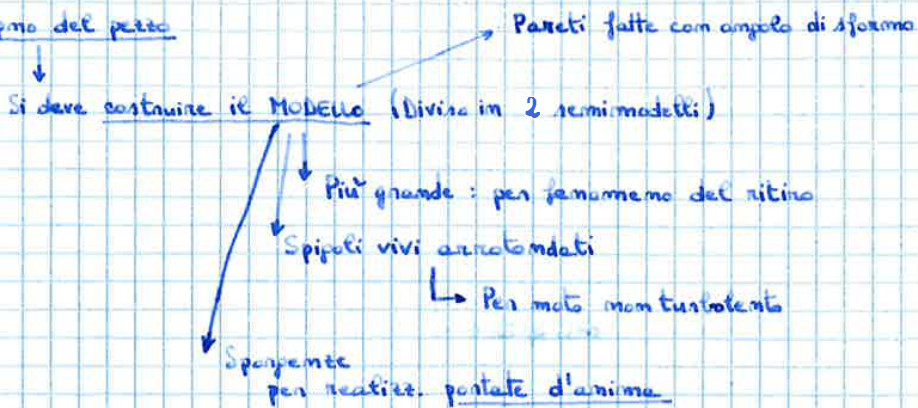 del pezzo
Pareti fatte con angolo di sformo
Si deve costruire il MODELLO (Diviso in 2 semimodelli)
Più grande : per fenomeno del ritiro
Spigoli vivi arrotondati
Per moto non turbolento
Sporgenze
per realizz. portate d'anima